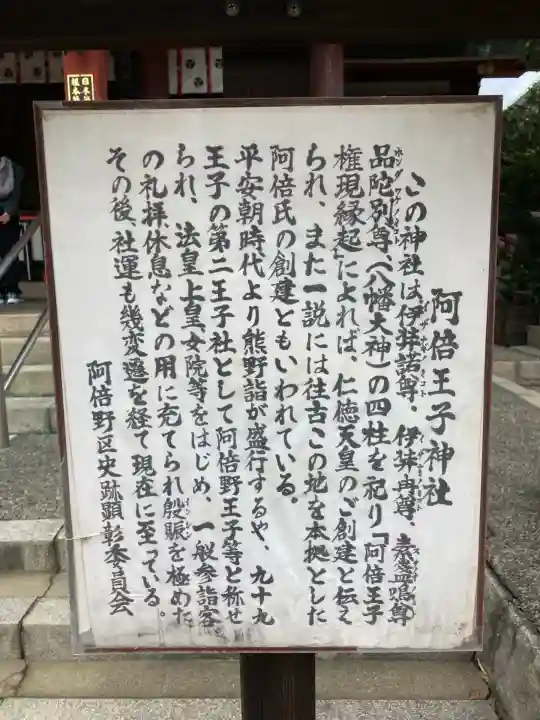 阿倍王子神社
この神社は伊弉諾尊、伊弉冉尊、素盞嗚尊
品陀別尊、(八幡大神)の四柱を祀り「阿倍王子
権現縁起」によれば、仁徳天皇のご創建と伝え
られ、また一説には往古この地を本拠とした
阿倍氏の創建ともいわれている。
平安朝時代より熊野詣が盛行するや、九十九
王子の第二王子社として阿倍野王子等と称せ
られ、法皇、上皇、女院等をはじめ、一般参詣客
の礼拝、休息などの用に充てられ殷賑を極めた
その後、社運も幾変遷を経て現在に至っている。
阿倍野区史跡顕彰委員会